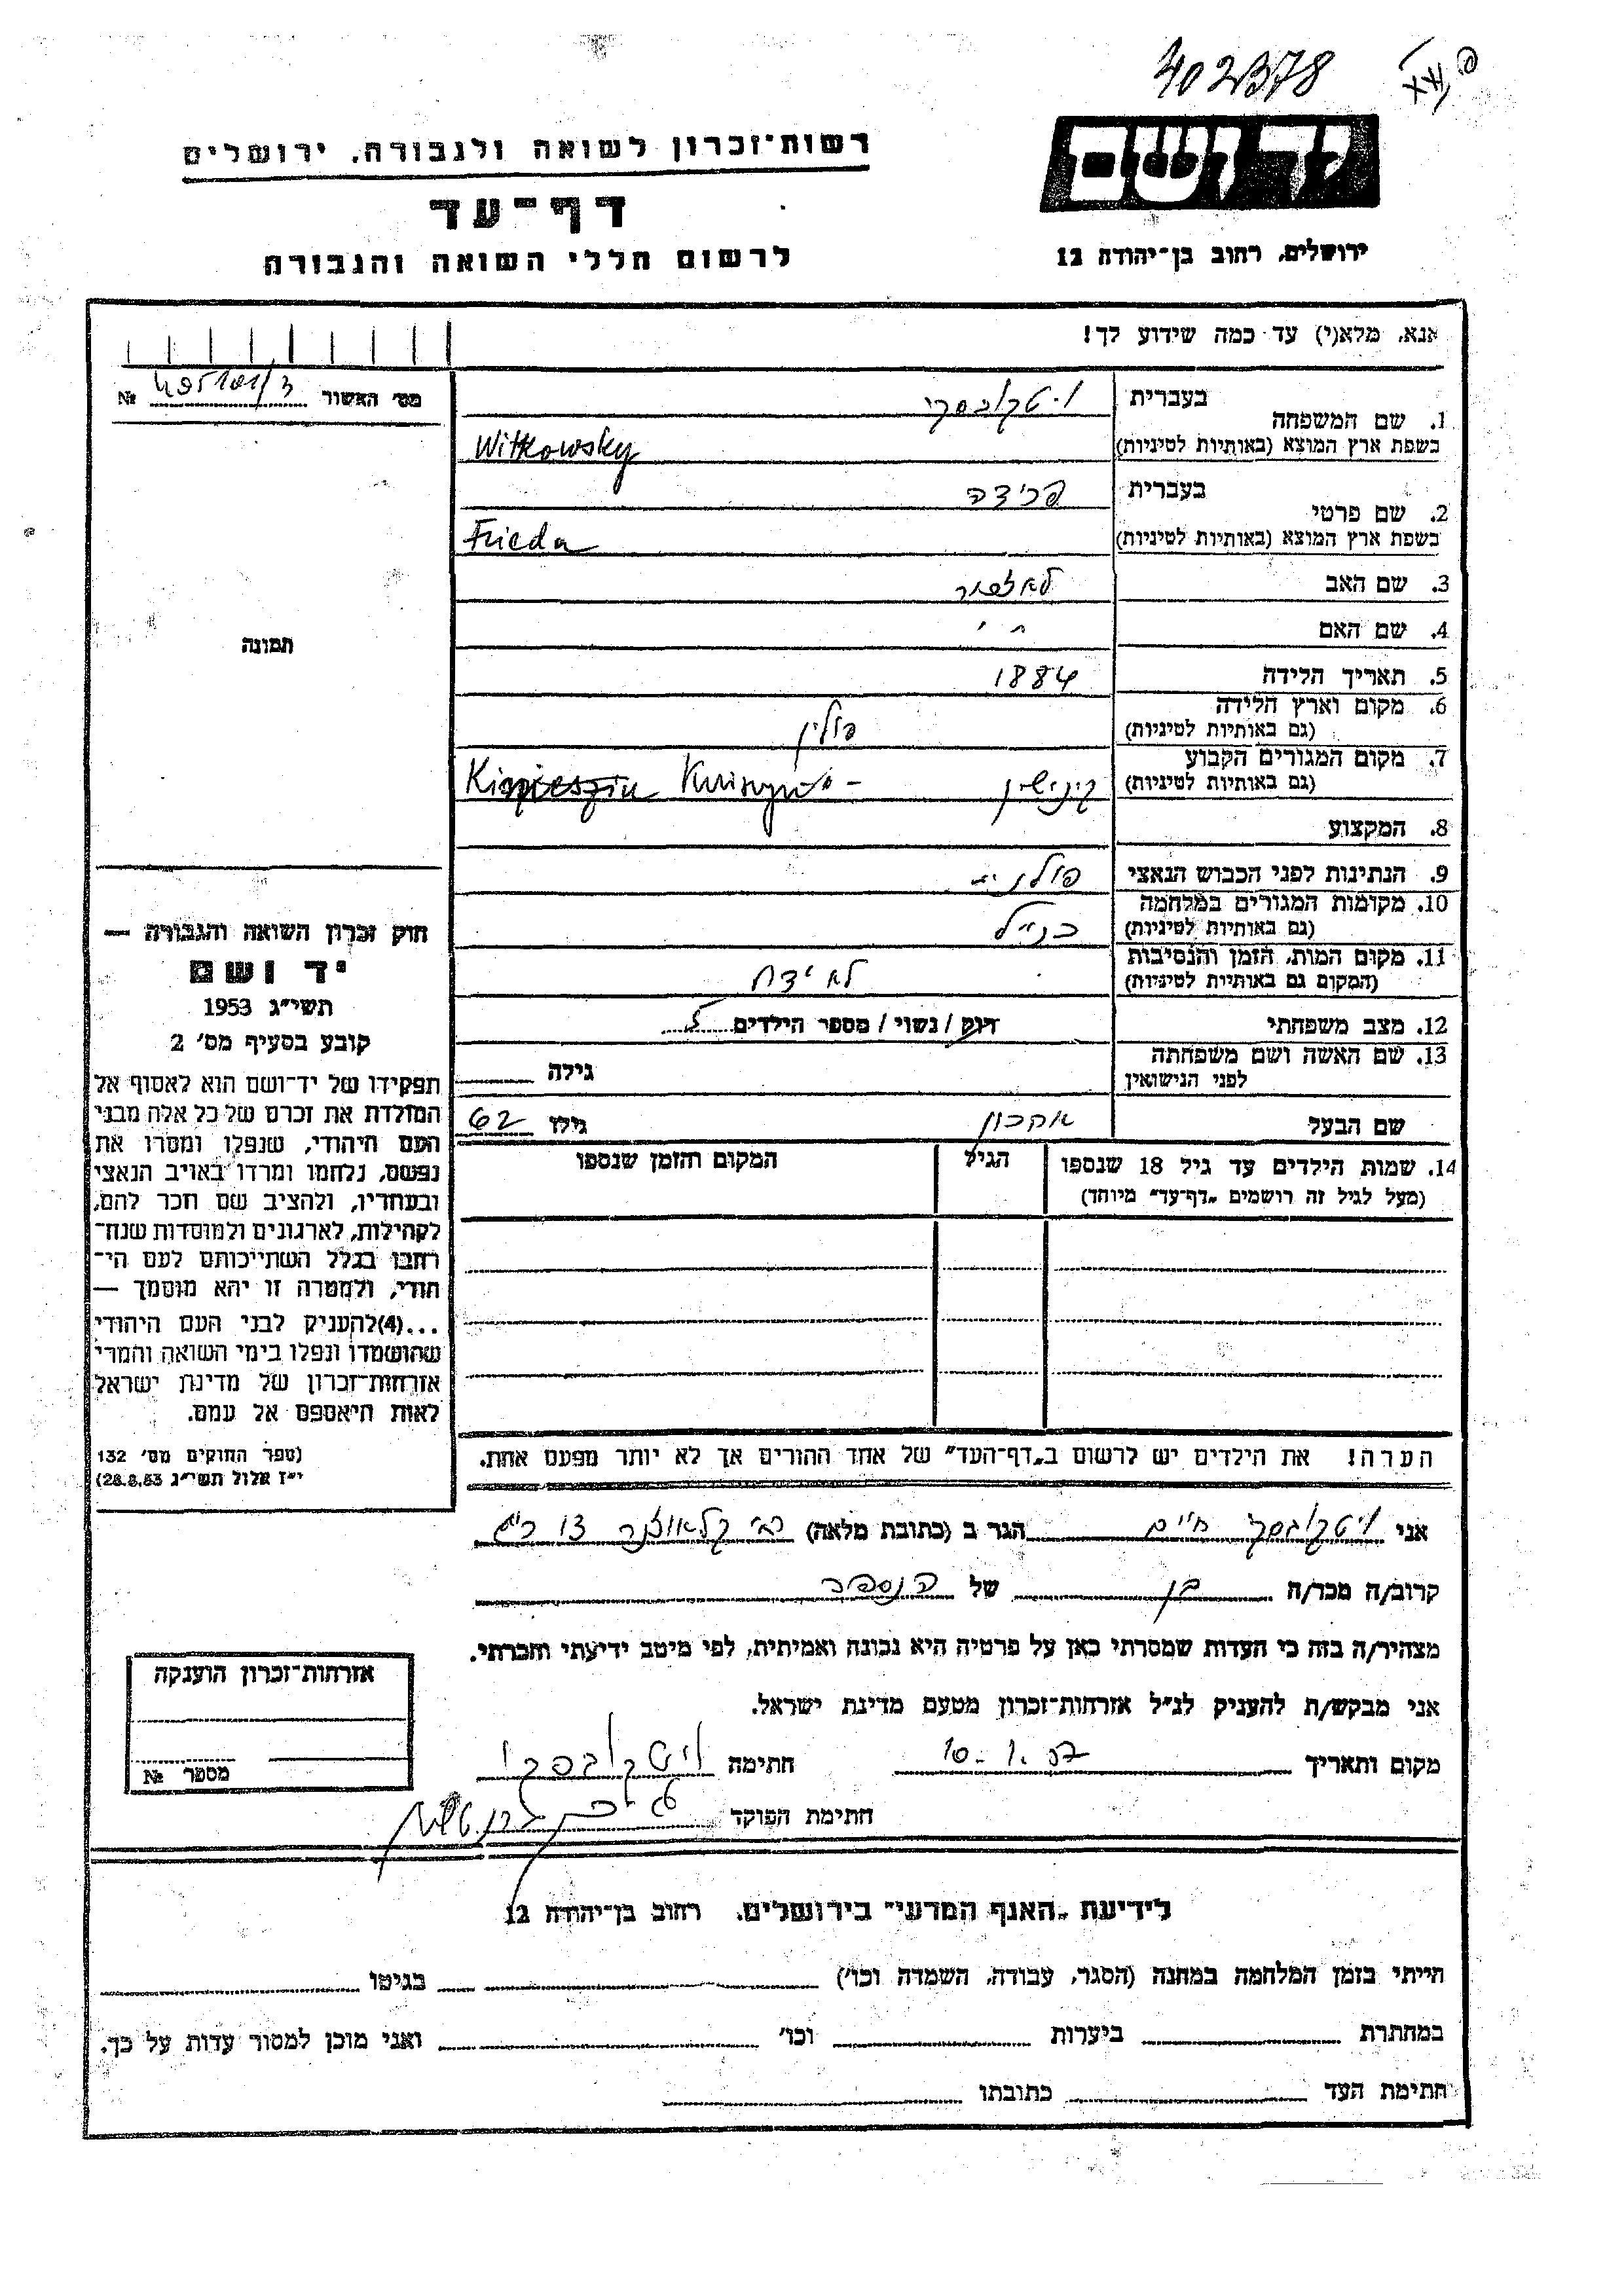 402378
רשות־זכרון לשואה ולגבורה, ירושלים
יד ושם
דף־עד
ירושלים, רחוב בן־יהודה 12
לרשום חללי השואה והגבורה
אנא, מלא(י) עד כמה שידוע לך!
מס׳ האשור №
1. שם המשפחה
בעברית ויטקובסקי
בשפת ארץ המוצא (באותיות לטיניות) Witkowsky
2. שם פרטי
בעברית פרידה
בשפת ארץ המוצא (באותיות לטיניות) Frieda
3. שם האב
4. שם האם
5. תאריך הלידה 1884
6. מקום וארץ הלידה
(גם באותיות לטיניות) פולין
7. מקום המגורים הקבוע
(גם באותיות לטיניות)
8. המקצוע
9. הנתינות לפני הכבוש הנאצי פולנית
10. מקומות המגורים במלחמה
(גם באותיות לטיניות) כנ״ל
11. מקום המות, הזמן והנסיבות
(המקום גם באותיות לטיניות) לא ידוע
12. מצב משפחתי רווק / נשוי / מספר הילדים 5
13. שם האשה ושם משפחתה
לפני הנישואין גילה
שם הבעל אהרון גילו 62
14. שמות הילדים עד גיל 18 שנספו הגיל המקום והזמן שנספו
(מעל לגיל זה רושמים „דף־עד״ מיוחד)
הערה! את הילדים יש לרשום ב„דף־העד״ של אחד ההורים אך לא יותר מפעם אחת.
תמונה
חוק זכרון השואה והגבורה —
יד ושם
תשי״ג 1953
קובע בסעיף מס׳ 2
תפקידו של יד־ושם הוא לאסוף אל
המולדת את זכרם של כל אלה מבני
העם היהודי, שנפלו ומסרו את
נפשם, נלחמו ומרדו באויב הנאצי
ובעוזריו, ולהציב שם וזכר להם,
לקהילות, לארגונים ולמוסדות שנח־
רבו בגלל השתייכותם לעם הי־
הודי, ולמטרה זו יהא מוסמך —
...(4)להעניק לבני העם היהודי
שהושמדו ונפלו בימי השואה והמרי
אזרחות־זכרון של מדינת ישראל
לאות היאספם אל עמם.
(ספר החוקים מס׳ 132
י״ז אלול תשי״ג 28.8.53)
אני ויטקובסקי חיים הגר ב (כתובת מלאה)
קרוב/ה מכר/ה בן של הנספה
מצהיר/ה בזה כי העדות שמסרתי כאן על פרטיה היא נכונה ואמיתית, לפי מיטב ידיעתי והכרתי.
אני מבקש/ת להעניק לנ״ל אזרחות־זכרון מטעם מדינת ישראל.
מקום ותאריך 10.1.57 חתימה ויטקובסקי
חתימת הפוקד
אזרחות־זכרון הוענקה
מספר №
לידיעת „האגף המדעי״ בירושלים, רחוב בן־יהודה 12
הייתי בזמן המלחמה במחנה (הסגר, עבודה, השמדה וכו׳) בגיטו
במחתרת ביערות וכו׳ ואני מוכן למסור עדות על כך.
חתימת העד כתובתו